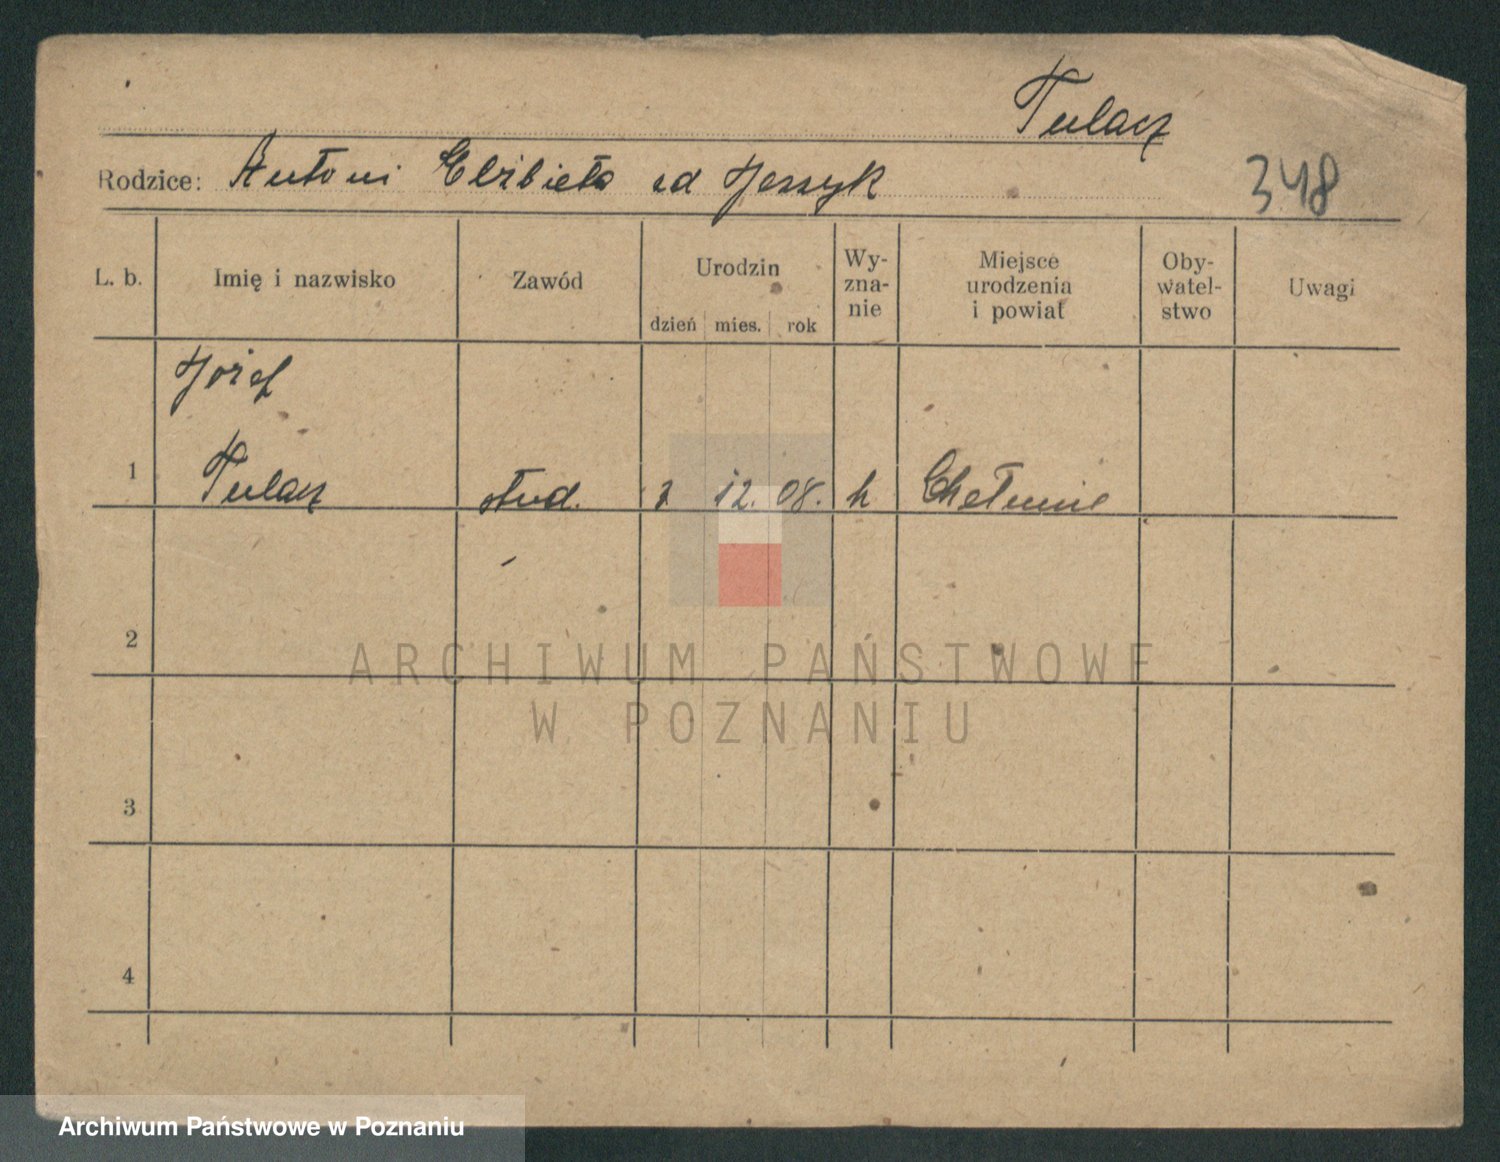 Tulacz
Rodzice: Antoni Elżbieta zd Jeszyk
348
L. b. Imię i nazwisko Zawód Urodzin dzień mies. rok Wy-zna-nie Miejsce urodzenia i powiat Oby-watel-stwo Uwagi
Józef
1 Tulacz stud. 12. 08. Chełmnie
2
ARCHIWUM PAŃSTWOWE
W POZNANIU
3
4
Archiwum Państwowe w Poznaniu